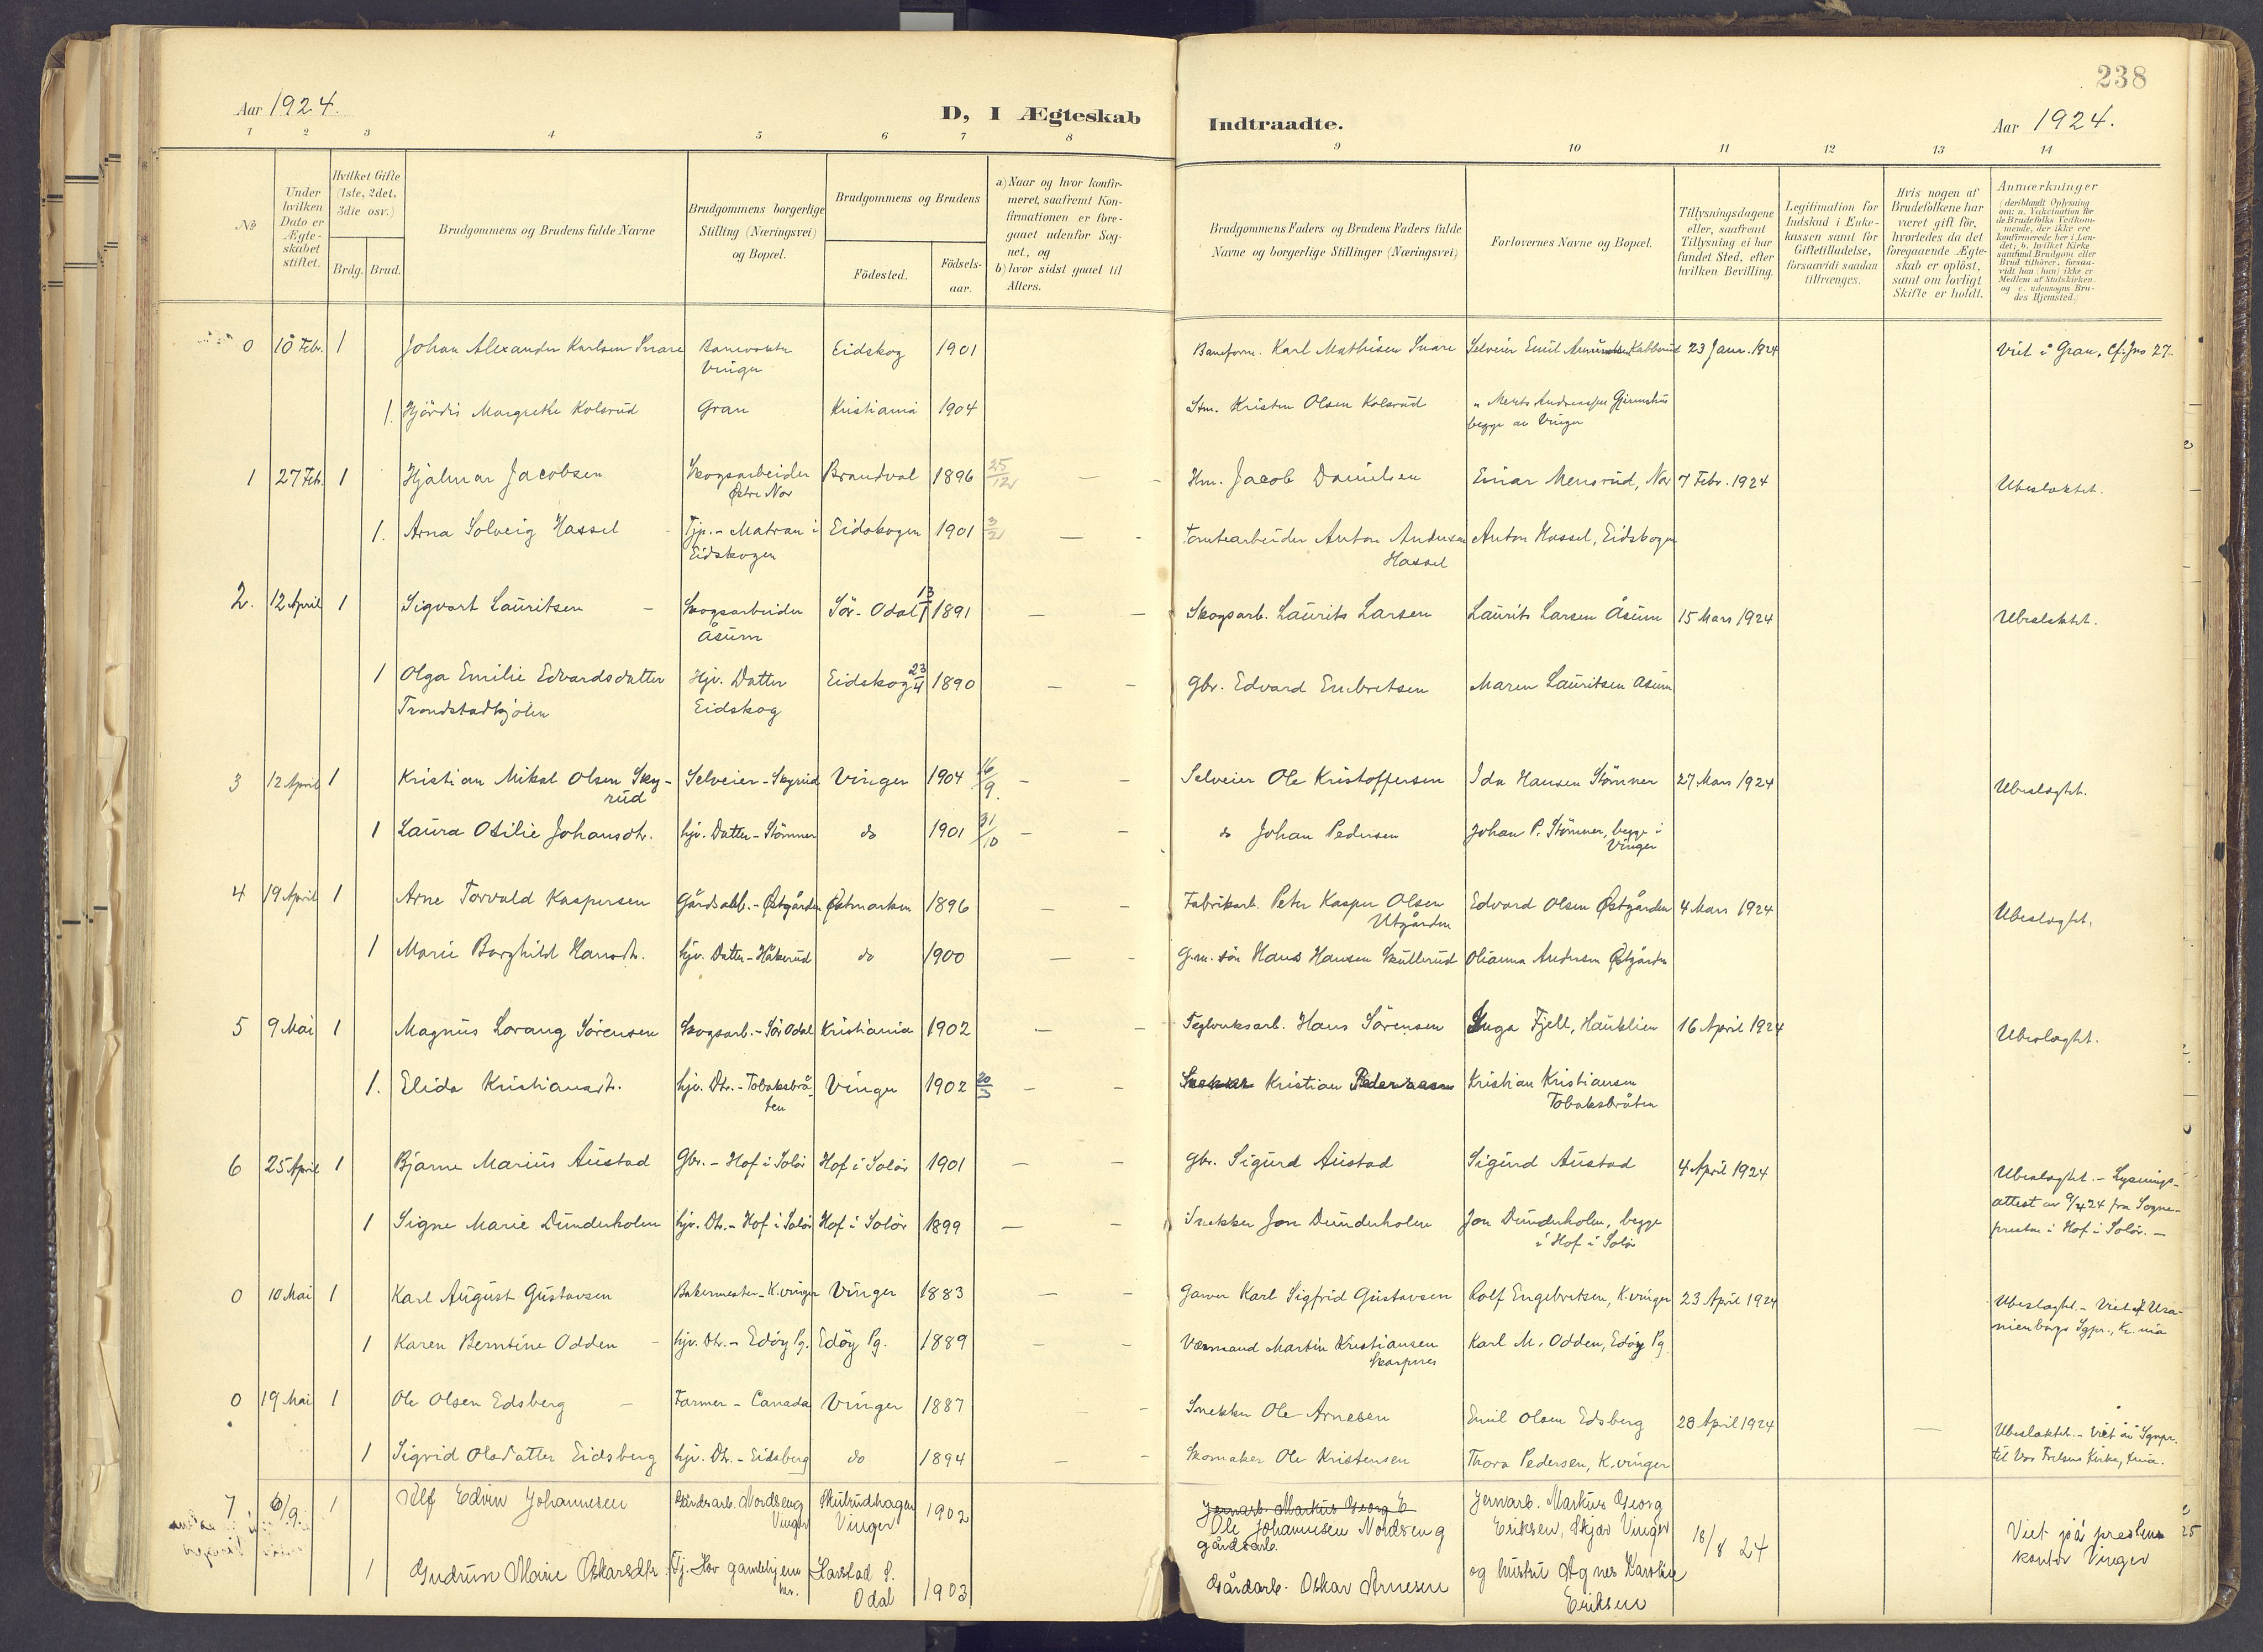 238
Aar 1924.
D, I Ægteskab Indtraadte.
Aar 1924.
1 2 3 4 5 6 7 8 9 10 11 12 13 14
No
Under hvilken Dato er Ægteskabet stiftet.
Hvilket Gifte (1ste, 2det, 3die osv.)
Brdg. Brud.
Brudgommens og Brudens fulde Navne
Brudgommens borgerlige Stilling (Næringsvei) og Bopæl.
Brudgommens og Brudens
Fødested.
Fødsels-aar.
a) Naar og hvor konfirmeret, saafremt Konfirmationen er foregaaet udenfor Sognet, og
b) hvor sidst gaaet til Alters.
Brudgommens Faders og Brudens Faders fulde Navne og borgerlige Stillinger (Næringsvei)
Forlovernes Navne og Bopæl.
Tillysningsdagene eller, saafremt Tillysning ei har fundet Sted, efter hvilken Bevilling.
Legitimation for Indskud i Enkekassen samt for Giftetilladelse, forsaavidt saadan tiltrænges.
Hvis nogen af Brudefolkene har været gift før, hvorledes da det foregaaende Ægteskab er opløst, samt om lovligt Skifte er holdt.
Anmærkninger (deriblandt Oplysning om: a. Vakcination for de Brudefolks Vedkommende, der ikke ere konfirmerede her i Landet; b. hvilket Kirkesamfund Brudgom eller Brud tilhører, forsaavidt han (hun) ikke er Medlem af Statskirken. og c. udensogns Brudes Hjemsted.)
0 10 Febr. 1 Johan Alexander Karlsen Snare Banevokter Vinger Eidskog 1901 Baneform. Karl Mathisen Snare Selveier Emil 23 Janr. 1924 Viet i Gran. Cf. Jno 27.
1. Hjördis Margrethe Kolsrud Gran Kristiania 1904 Stm. Kristen Olsen Kolsrud begge av Vinger
1 27 Feb. 1 Hjalmar Jacobsen Skogsarbeider Østre Nor Brandval 1896 25/12 Hm. Jacob Danielsen Einar Mensrud, Nor 7 Febr. 1924 Ubeslektet.
1. Arna Solveig Hassel Tjp. - Matran i Eidskogen Eidskogen 1901 3/2 Tomtearbeider Anton Andersen Hassel Anton Hassel, Eidskogen
2. 12 April 1 Sigvart Lauritsen Skogsarbeider Åsum Sör-Odal 13/1 1891 Skogsarb. Laurits Larsen Laurits Larsen Åsum 15 Mars 1924 Ubeslektet.
1 Olga Emilie Edvardsdatter Trondstadkjølen Hjv. Datter Eidskog Eidskog 23/4 1890 Gbr. Edvard Embretsen Maren Lauritsen Åsum
3 12 April 1 Kristian Mikal Olsen Skyrud Selveier - Skyrud Vinger 1904 16/9. Selveier Ole Kristoffersen Ida Hansen Störmer 27 Mars 1924 Ubeslægtet.
1 Laura Otilie Johansdtr. hjv. Datter - Störmer do 1901 31/10 do Johan Pedersen Johan P. Störmer, begge i Vinger
4 19 April 1 Arne Torvald Kaspersen Gårdsarb. - Østgården Østmarken 1896 Fabrikarb. Peter Kasper Olsen Utgården Edvard Olsen Østgården 4 Mars 1924 Ubeslægtet.
1 Marie Borghild Hansdtr. hjv. Datter - Håkerud do 1900 G.m. sön Hans Hansen Skullerud Olianna Andersen Østgården
5 9 Mai 1 Magnus Lorang Sörensen Skogsarb. - Sör Odal Kristiania 1902 Teglverksarb. Hans Sörensen Inga Fjell, Hauklien 16 April 1924 Ubeslægtet.
1. Elida Kristiansdt. hjv. Dtr. - Tobaksbråten Vinger 1902 20/3 Kristian Pedersen Kristian Kristiansen Tobaksbråten
6 25 April 1 Bjarne Marius Austad Gbr. - Hof i Solør Hof i Solør 1901 Gbr. Sigurd Austad Sigurd Austad 4 April 1924 Ubeslægtet. - Lysningsattest av 9/4 24 fra Sognepresten i Hof i Solør. -
1 Signe Marie Dunderholen hjv. Dtr. - Hof i Solør Hof i Solør 1899 Snekker Jon Dunderholen Jon Dunderholen, begge i Hof i Solør
0 10 Mai 1 Karl August Gustavsen Bakermester - K.vinger Vinger 1883 Garver Karl Sigfrid Gustavsen Rolf Engebretsen, K.vinger 23 April 1924 Ubeslægtet. - Viet i Uranienborgs Sgpr., Kr.nia
1 Karen Berntine Odden hjv. Dtr. - Edöy Pg. Edöy Pg. 1889 Martin Kristiansen Karl M. Odden, Edöy Pg.
0 19 Mai 1 Ole Olsen Edsberg Farmer - Canada Vinger 1887 Snekker Ole Arnesen Emil Olsen Edsberg 28 April 1924 Ubeslektet. - Viet av Sgnpr. til Vor Frelsers Kirke, Kr.nia.
1 Sigrid Olsdatter Eidsberg hjv. Dtr. - Eidsberg do 1894 Skomaker Ole Kristensen Thora Pedersen, K.vinger
7 6/9. 1 Alf Edvin Johannesen Gårdsarb. Nordseng Vinger Skulrudhagen Vinger 1902 Jernarb. Markus Georg E Ole Johannesen Nordseng gårdsarb. Jernarb. Markus Georg Eriksen, Skjær Vinger 18/8 24 Viet på prestens kontor Vinger
1 Gudrun Marie Oskarsdtr. Tj. Hov gamlehjem Sarstad S. Odal 1903 Gårdarb. Oskar Arnesen og hustru Agnes Karoline Eriksen